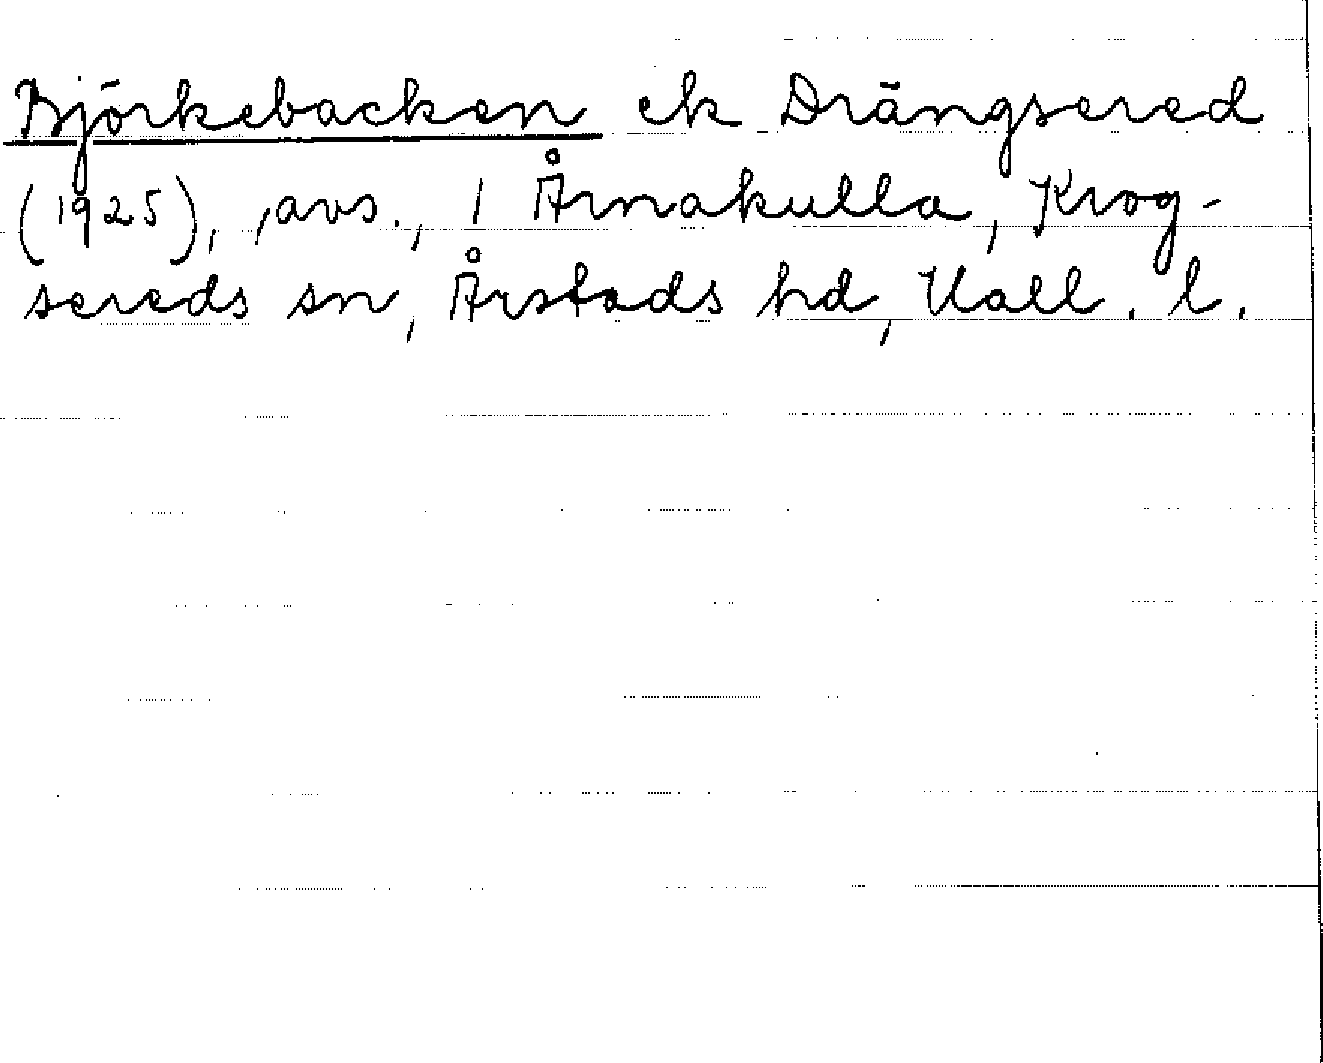 Björkebacken ek Drängsered
(1925), avs., / Årnakulla, Krog-
sereds sn, Årstads hd, Hall. l.